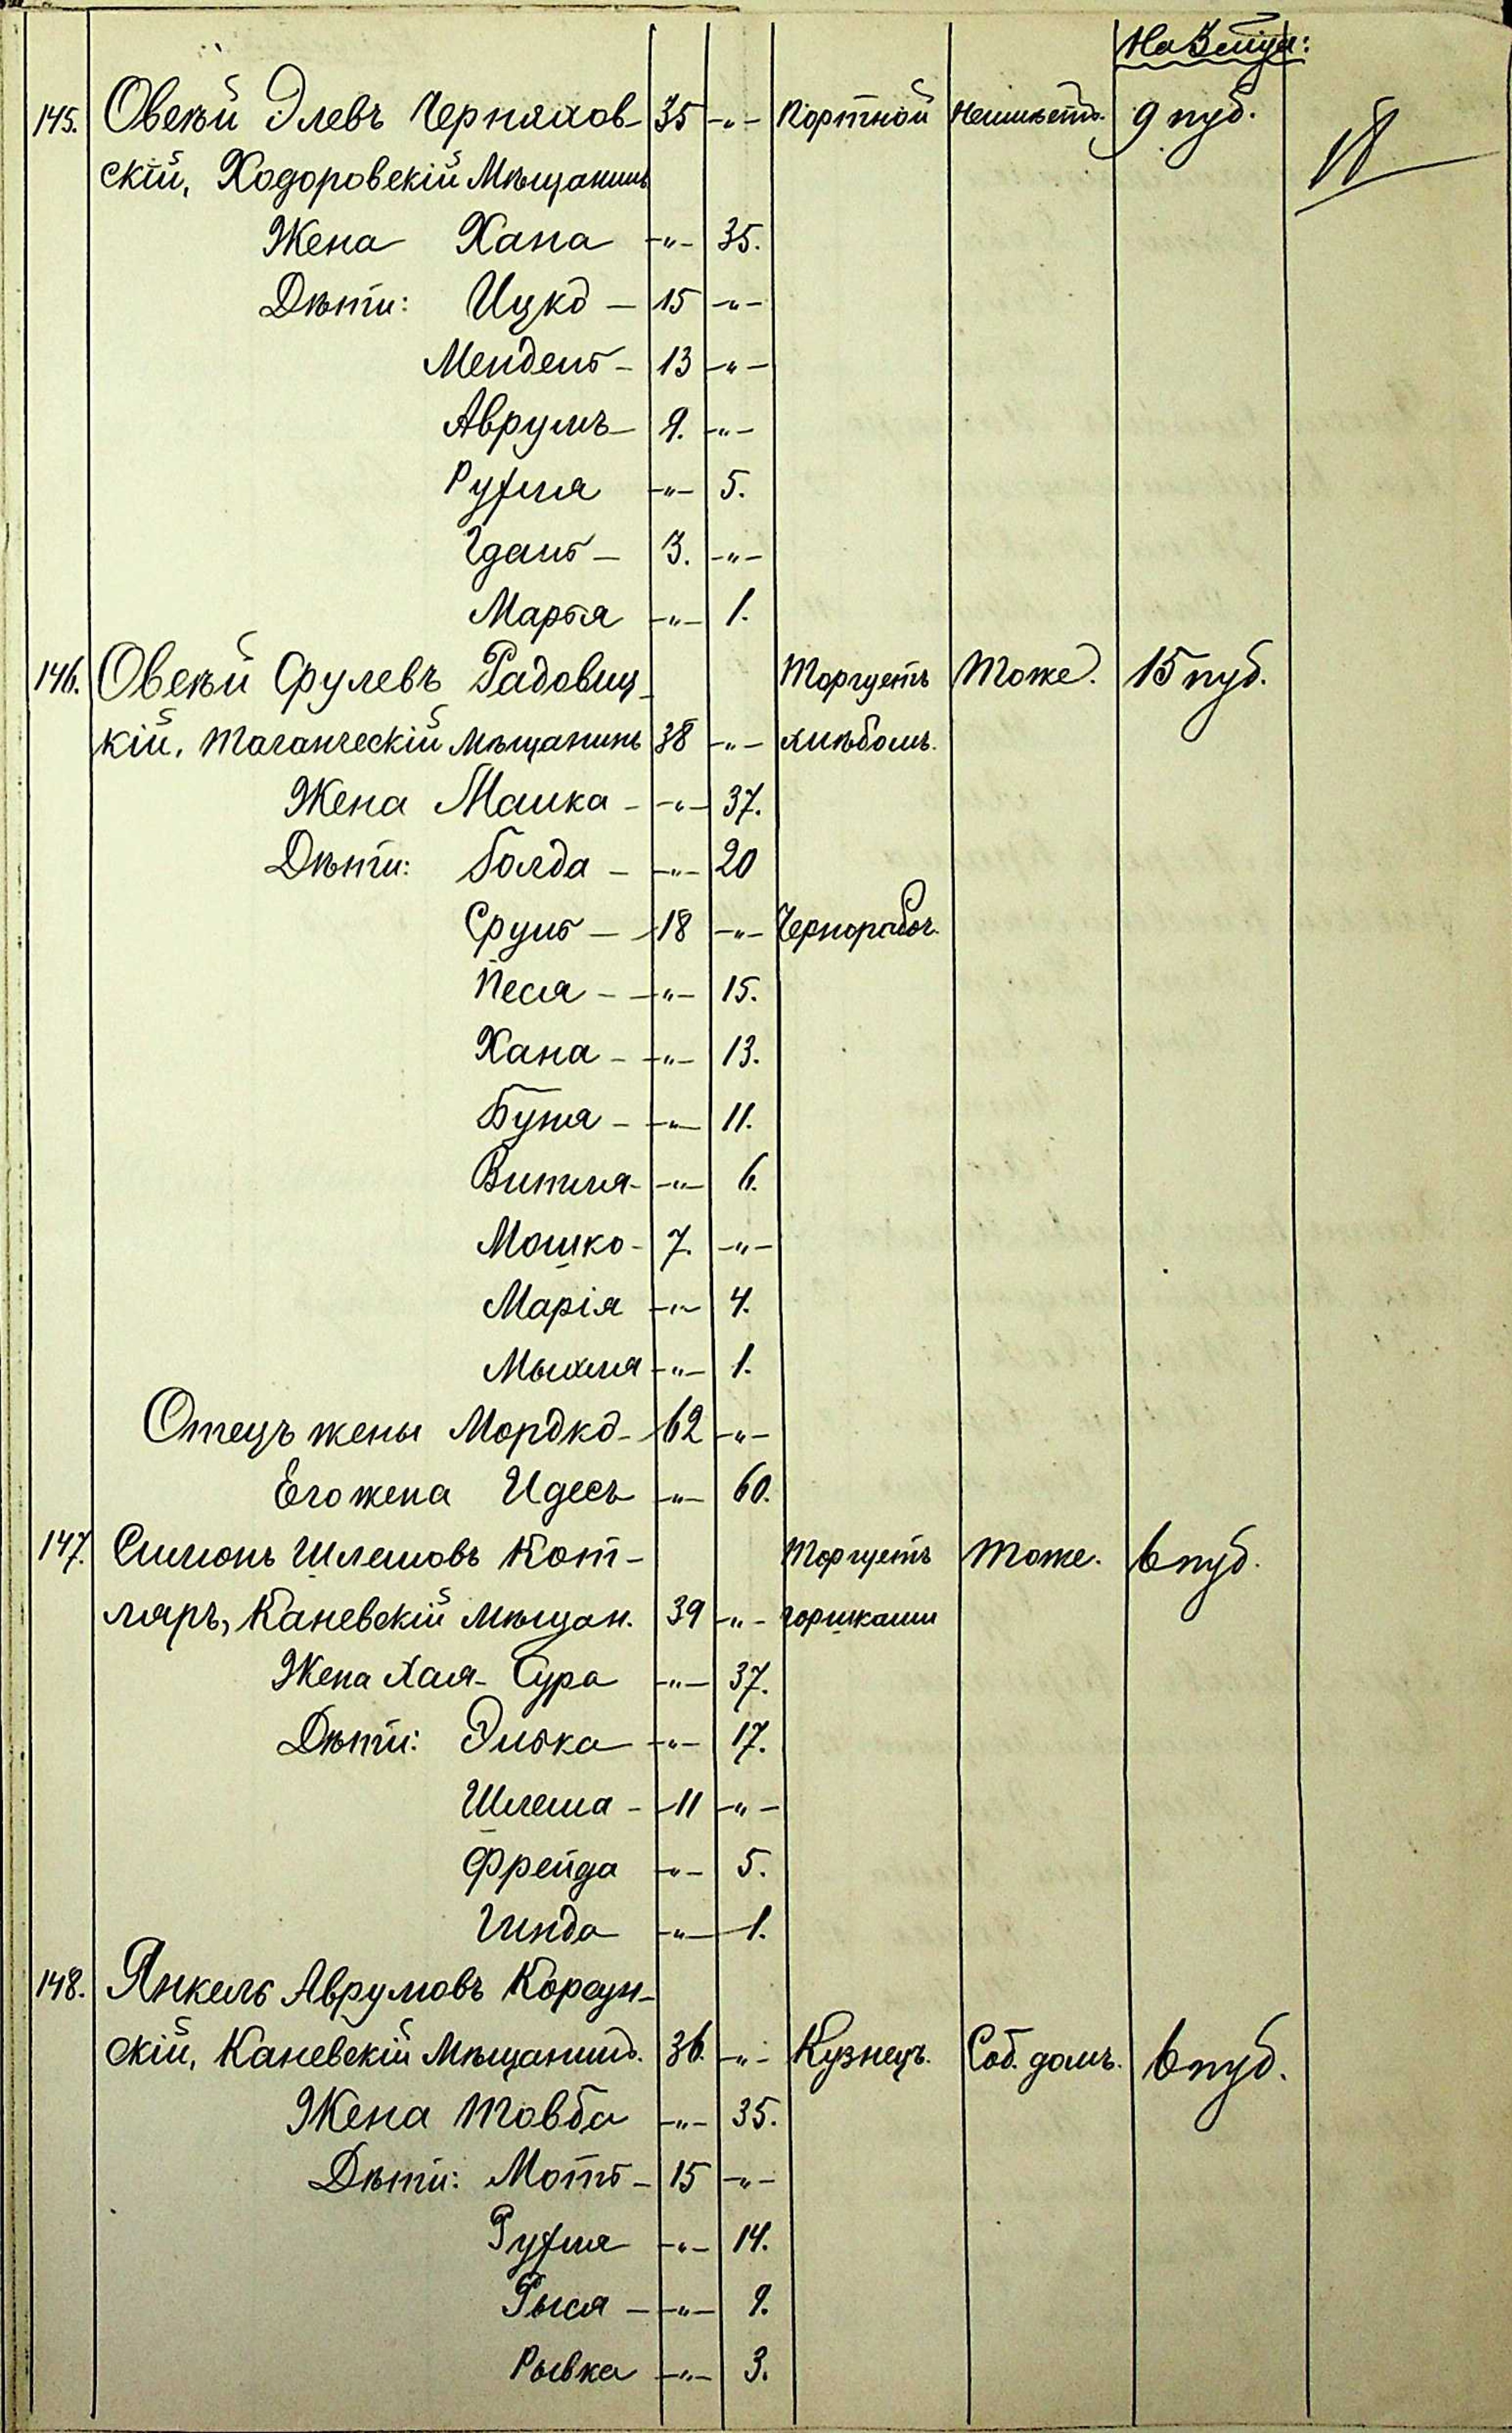 На Зейца:
145. Овсѣй Элевъ Черняхов- 35 -"- Портной Неимѣетъ. 9 пуд.
скій, Ходоровскій Мѣщанинъ
Жена Хана -"- 35.
Дѣти: Ицко - 15 -"-
Мендель - 13 -"-
Аврумъ - 9. -"-
Рухля -"- 5.
Гдаль - 3. -"-
Марья -"- 1.
146. Овсѣй Срулевъ Радовиц- Торгуетъ Тоже. 15 пуд.
кій, Таганческій Мѣщанинъ 38 -"- хлѣбомъ.
Жена Малка - -"- 37.
Дѣти: Голда - -"- 20
Сруль - 18 -"- Чернорабоч.
Песя - -"- 15.
Хана - -"- 13.
Буня - -"- 11.
Витля - -"- 6.
Мошко - 7. -"-
Марія -"- 4.
Мыхля -"- 1.
Отецъ жены Мордко - 62 -"-
Его жена Идесъ -"- 60.
147. Симонъ Шлемовъ Кот- Торгуетъ Тоже. 6 пуд.
ляръ, Каневскій Мѣщан. 39 -"- горшками
Жена Хая-Сура -"- 37.
Дѣти: Элька -"- 17.
Шлема - 11 -"-
Фрейда -"- 5.
Гинда -"- 1.
148. Янкель Аврумовъ Корсун-
скій, Каневскій Мѣщанинъ. 36. -"- Кузнецъ. Соб. домъ. 6 пуд.
Жена Товба -"- 35.
Дѣти: Моть - 15 -"-
Рухля -"- 14.
Рыся - -"- 9.
Рывка -"- 3.